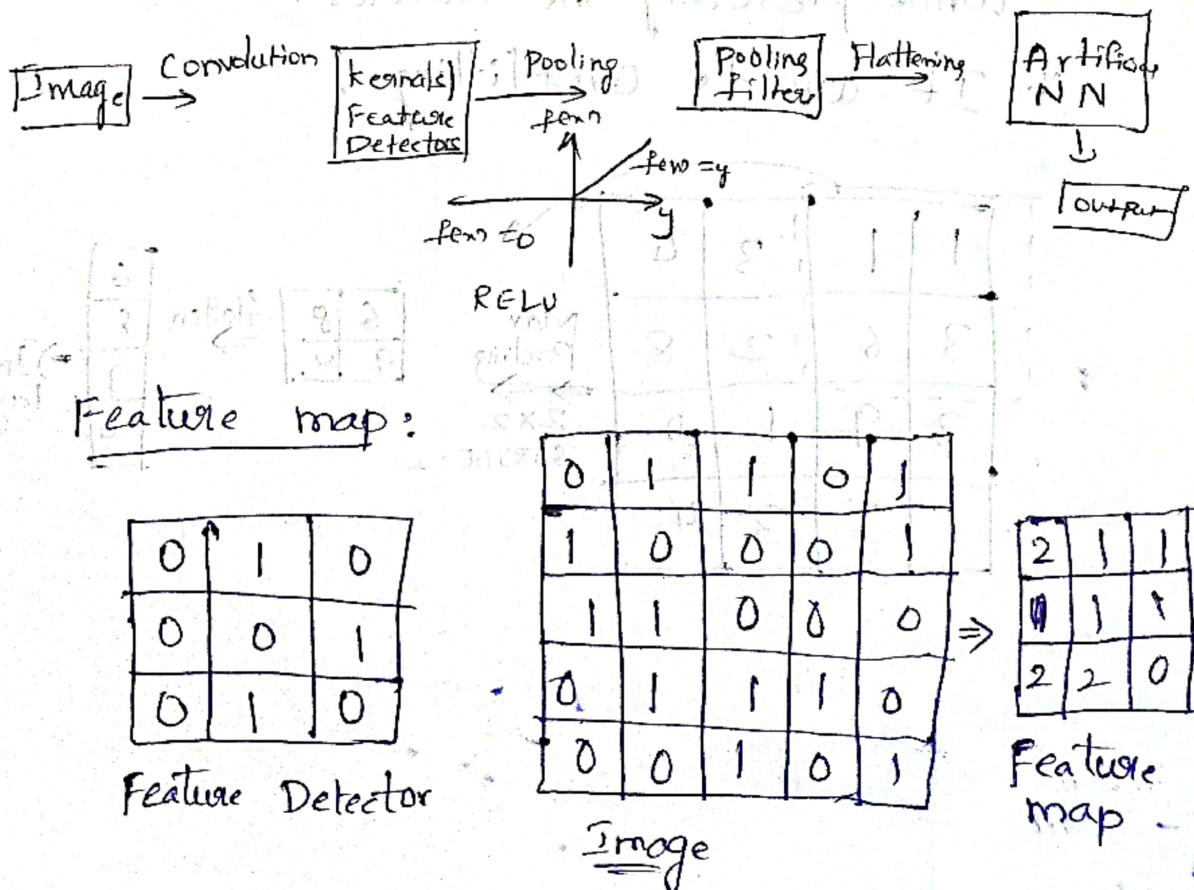 Image → Convolution
Kernals)
Feature
Detectors
Pooling
Pooling
filter
Flattening
Artificial
NN
Output
f(x)
f(x) = y
y
f(x) = 0
RELU
Feature map:
0 1 0
0 0 1
0 1 0
Feature Detector
0 1 1 0 1
1 0 0 0 1
1 1 0 0 0
0 1 1 1 0
0 0 1 0 1
Image
⇒
2 1 1
1 1 1
2 2 0
Feature
map.